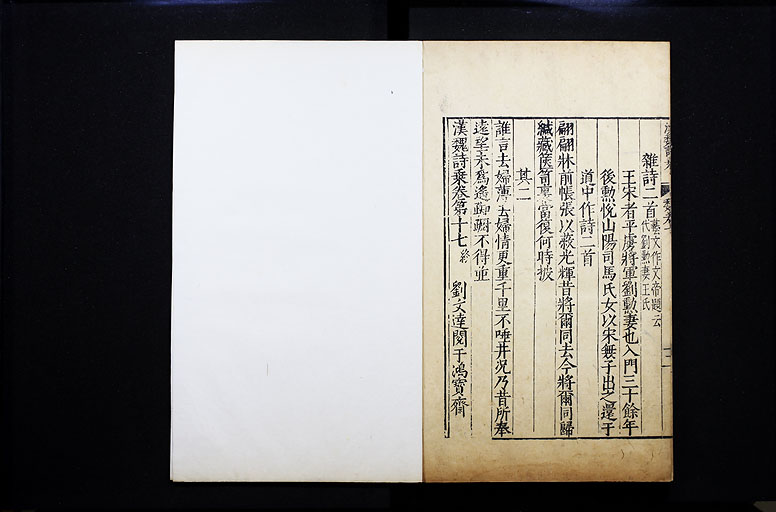 雜詩二首藝文作文帝題云代劉勲妻王氏
王宋者平虜將軍劉勲妻也入門三十餘年
後勲悅山陽司馬氏女以宋無子出之還于
道中作詩二首
翩翩牀前帳張以蔽光輝昔將爾同去今將爾同歸
緘藏篋笥裏當復何時披
其二
誰言去婦薄去婦情更重千里不唾井況乃昔所奉
遠望未爲遙踟躕不得並
漢魏詩乗卷第十七終 劉文達閱于鴻寶齋